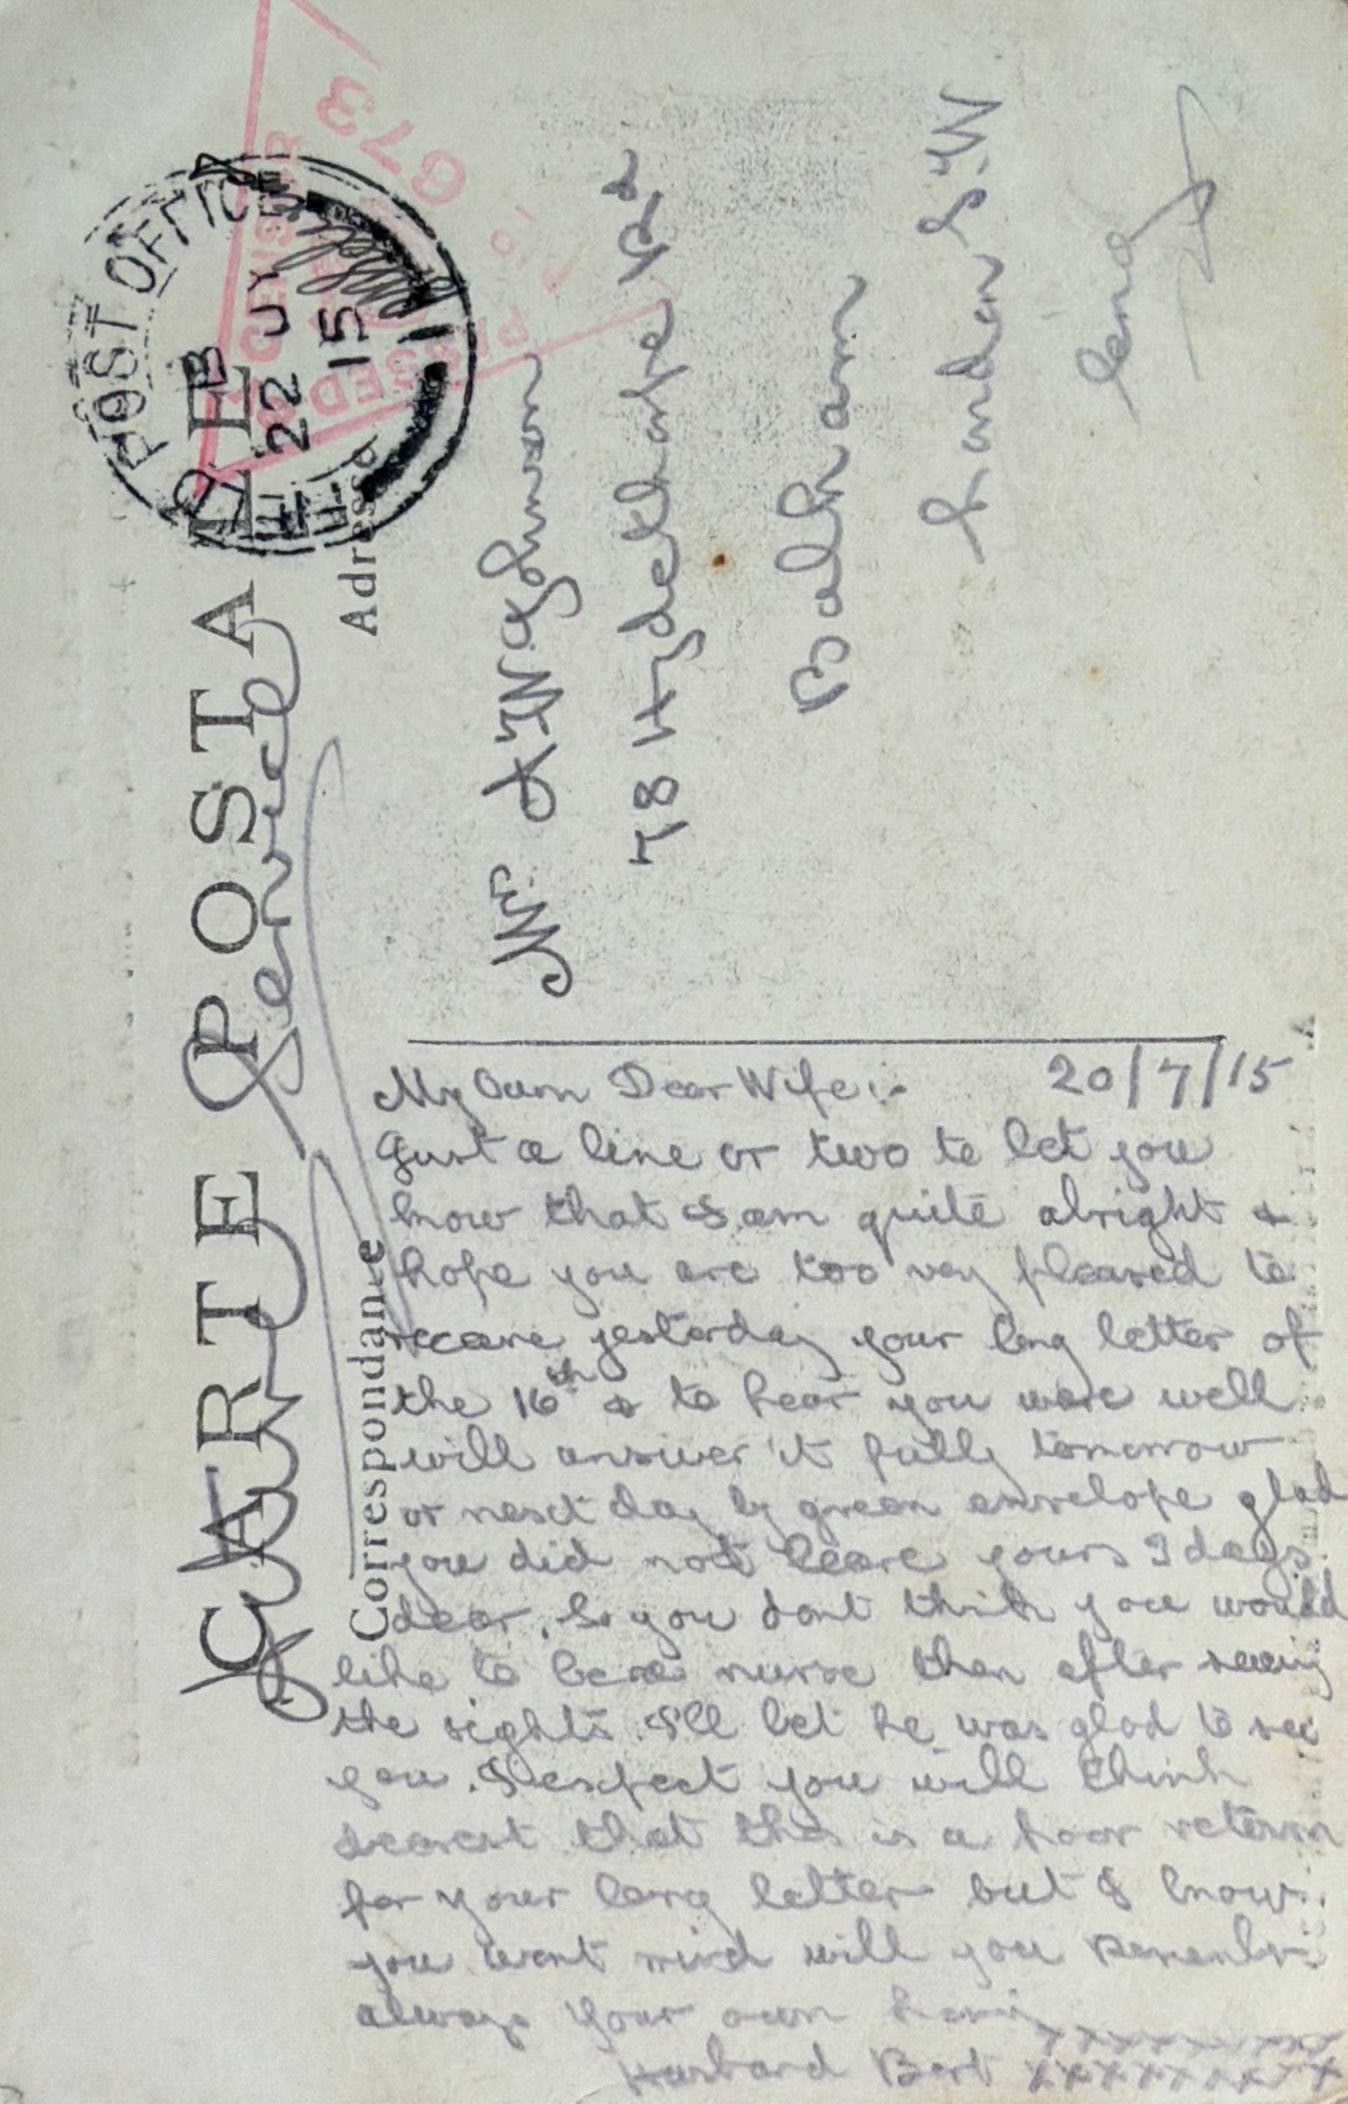 CARTE POSTALE
On Active Service
Correspondance
Adresse
FIELD POST OFFICE
B
22 JY
15
PASSED
No
673
Mrs A.W. Johnson
78 Hydethorpe Rd
Balham
London S.W
Eng
20/7/15
My Own Dear Wife:-
Just a line or two to let you
know that I am quite alright &
hope you are too very pleased to
receive yesterday your long letter of
the 16th & to hear you were well
will answer it fully tomorrow
or next day by green envelope glad
you did not leave yours 3 days
dear. So you dont think you would
like to be a nurse then after seeing
the sights I'll bet he was glad to see
you. I expect you will think
dearest that this is a poor return
for your long letter but I know
you wont mind will you
always your own loving
Husband Bert xxxxxxxxxx